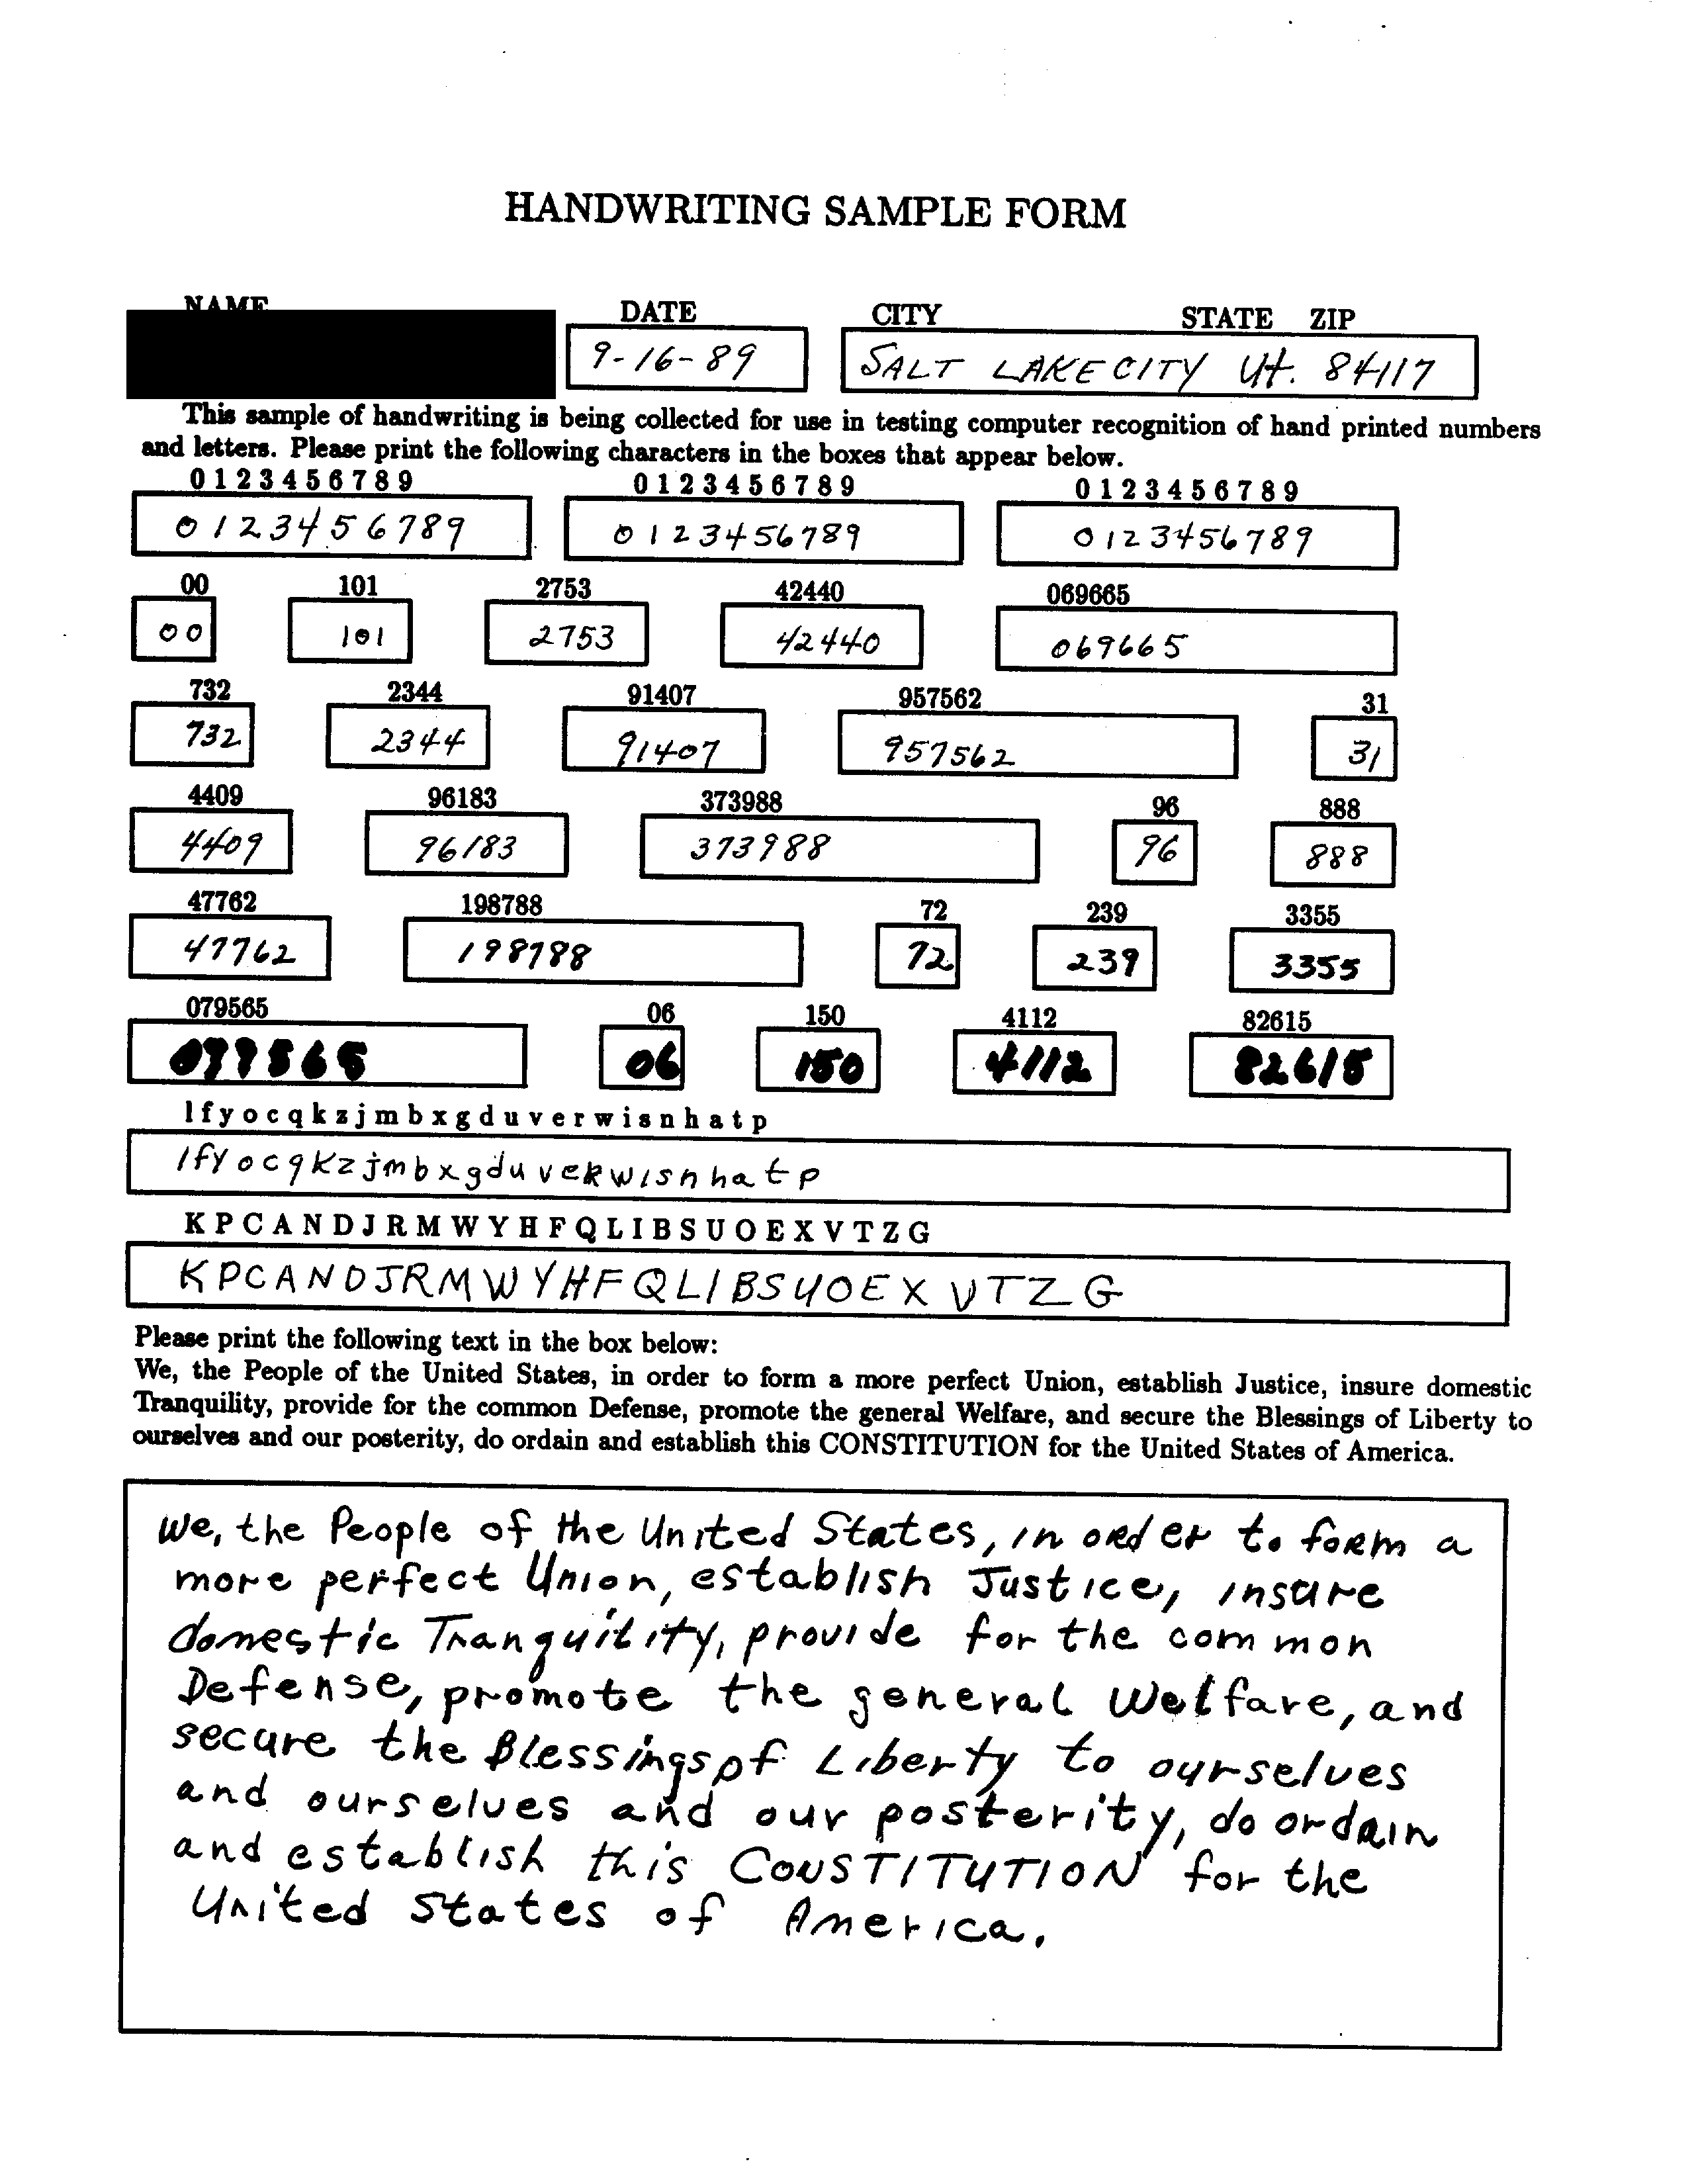 HANDWRITING SAMPLE FORM
NAME DATE CITY STATE ZIP
9-16-89 SALT LAKE CITY Ut. 84117
This sample of handwriting is being collected for use in testing computer recognition of hand printed numbers
and letters. Please print the following characters in the boxes that appear below.
0 1 2 3 4 5 6 7 8 9 0 1 2 3 4 5 6 7 8 9 0 1 2 3 4 5 6 7 8 9
0123456789 0123456789 0123456789
00 101 2753 42440 069665
00 101 2753 42440 069665
732 2344 91407 957562 31
732 2344 91407 957562 31
4409 96183 373988 96 888
4409 96183 373988 96 888
47762 198788 72 239 3355
47762 198788 72 239 3355
079565 06 150 4112 82615
079565 06 150 4112 82615
l f y o c q k z j m b x g d u v e r w i s n h a t p
lfyocqkzjmbxgduverwisnhatp
K P C A N D J R M W Y H F Q L I B S U O E X V T Z G
KPCANDJRMWYHFQLIBSUOEXVTZG
Please print the following text in the box below:
We, the People of the United States, in order to form a more perfect Union, establish Justice, insure domestic
Tranquility, provide for the common Defense, promote the general Welfare, and secure the Blessings of Liberty to
ourselves and our posterity, do ordain and establish this CONSTITUTION for the United States of America.
We, the People of the United States, in order to form a
more perfect Union, establish Justice, insure
domestic Tranquility, provide for the common
Defense, promote the general Welfare, and
secure the Blessings of Liberty to ourselves
and ourselves and our posterity, do ordain
and establish this CONSTITUTION for the
United States of America.